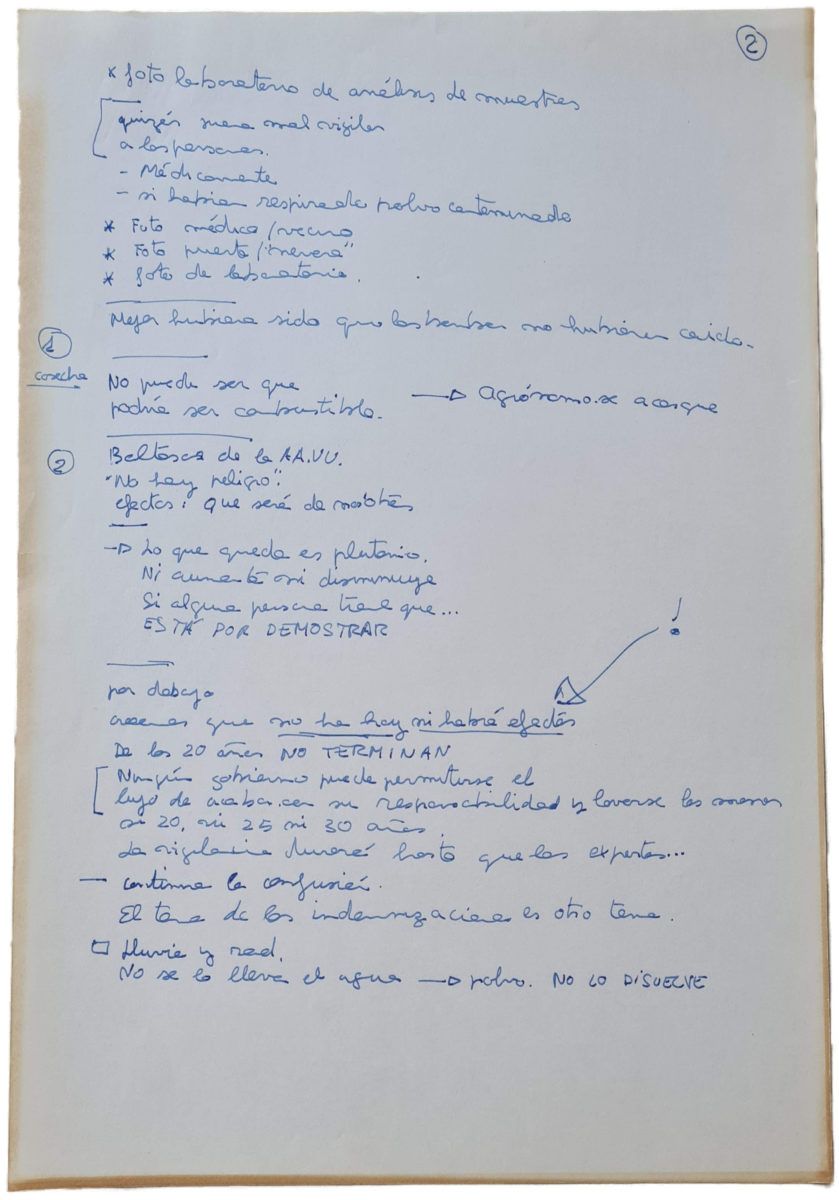 2
* foto laboratorio de análisis de muestras
quizás suena mal vigilar
a las personas.
- Médicamente
- si habían respirado polvo contaminado
* Foto médico/vecino
* Foto puerta/"nevera"
* foto de laboratorio.
Mejor hubiera sido que las bombas no hubieran caído.
1
cosecha
No puede ser que
podría ser combustible. → Agrónomo.se acerque
2
Baltasar de la AA.VV.
"No hay peligro".
efectos: Que será de nosotros
→ Lo que queda es plutonio.
Ni aumenta ni disminuye
Si alguna persona tiene que...
ESTÁ POR DEMOSTRAR
!
por debajo
creemos que no ha hay ni habrá efectos
De los 20 años NO TERMINAN
Ningún gobierno puede permitirse el
lujo de acabar con su responsabilidad y lavarse las manos
ni 20, ni 25 ni 30 años.
La vigilancia durará hasta que los expertos...
— continua la confusión.
El tema de las indemnizaciones es otro tema.
□ Lluvia y rad.
No se lo lleva el agua → polvo. NO LO DISUELVE